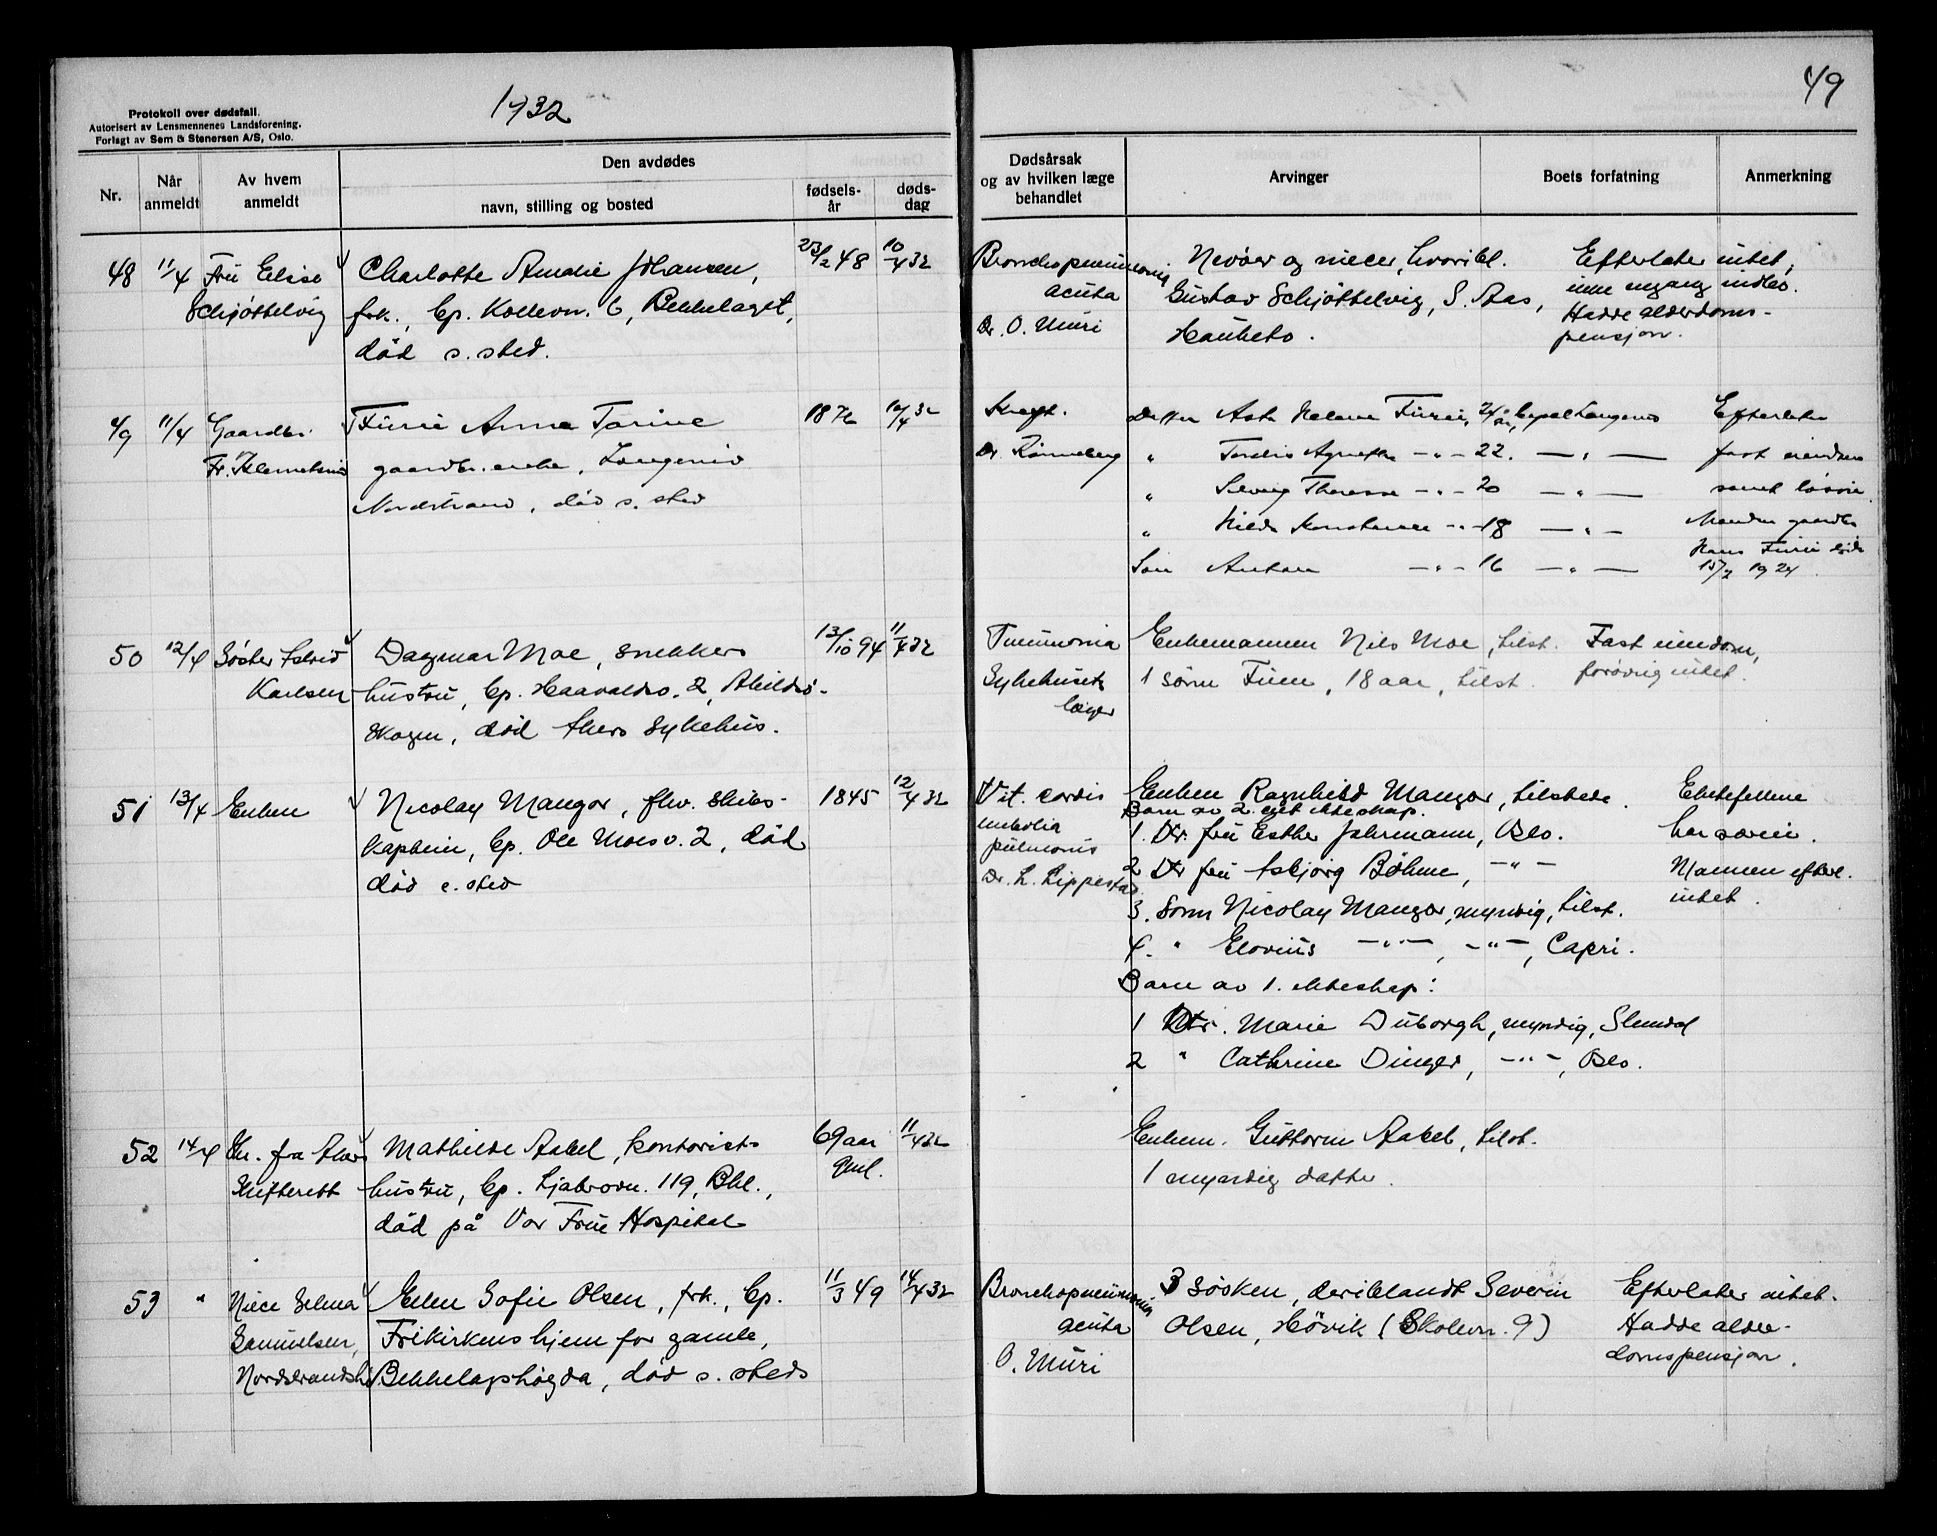 Protokoll over dødsfall.
Autorisert av Lensmennenes Landsforening.
Forlagt av Sem & Stenersen A/S, Oslo.
1932
49
Nr.
Når anmeldt
Av hvem anmeldt
Den avdødes
navn, stilling og bosted
fødsels-år
døds-dag
Dødsårsak og av hvilken læge behandlet
Arvinger
Boets forfatning
Anmerkning
48 11/4 Fru Elise Charlotte Amalie Johansen, 23/2 48 10/4 32 Bronchopneumonia Nevøer og niecer, hvoribl. Efterlater intet,
Schjøttelvig frk., bp. Kollevn. 6, Bekkelaget, acuta Gustav Schjøttelvig, S. Aas, ikke engang indbo.
død s. sted. Dr. O. Muri Hauketo. Hadde alderdoms-
pensjon.
49 11/4 Gaardbr. Furu Anna Torine 1872 10/4 32 Kreft. Datter Helene Furu, 24 år, Efterlater
Fr. Klemetsrud gaardbr. enke, Dr. Rönneberg " Agnethe -"- 22. -"- fast eiendom
Nordstrand, død s. sted " Solveig Therese -"- 20 -"- samt løsøre.
" Hilda -"- 18 -"- Manden gaardbr.
Søn Anton -"- 16 -"- Hans Furu døde
15/7 1924.
50 12/4 Søster Astrid Dagmar Moe, snekker- 13/10 94 11/4 32 Pneumonia Enkemannen Nils Moe, tilst. Fast eiendom,
Karlsen hustru, bp. Haavaldsv. 2, Abildsø- Sykehusets 1 sønn Finn, 18 aar, tilst. forøvrig intet.
skogen, død Akers sykehus. læger
51 13/4 Enken Nicolay Mangor, fhv. skibs- 1845 12/4 32 Vit. cordis Enken Ragnhild Mangor, tilstede. Ektefellene
Barn av 2. ekteskap.
kaptein, bp. Ole Moesv. 2, død embolia 1. Dtr. fru Esther Jahrmann, Oslo. har særeie.
død s. sted pulmonis 2 Dtr fru Asbjørg Böhme, -"- Mannen efterl.
Dr. L. Lippestad 3. Sønn Nicolay Mangor, myndig, tilst. intet.
4. " -"-, -"-, Capri.
Barn av 1. ekteskap:
1 Dtr. Marie Duborgh, myndig,
2 " Cathrine Dinger, -"-, Oslo.
52 14/4 fra Akers Mathilde Aabel, kontorist- 69 aar 11/4 32 Enkem. Guttorm Aabel, tilst.
Skifterett hustru, bp. Ljabrovn. 119, Bkl., gml. 1 myndig datter.
død på Vor Frue Hospital
53 " Niece Selma Ellen Sofie Olsen, frk., bp. 11/3 49 14/4 32 Bronchopneumonia 3 søsken, deriblandt Severin Efterlater intet.
Samuelsen, Frikirkens hjem for gamle, acuta Olsen, Høvik (Skolevn. 9) Hadde alder-
Bekkelagshøgda, død s. steds O. Muri domspensjon.